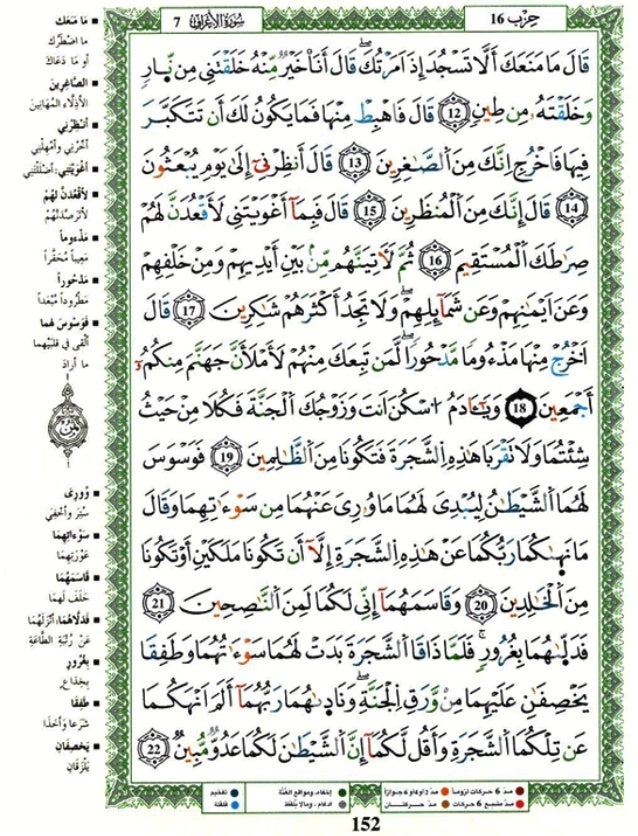 حزب 16
سورة الأعراف 7
قَالَ مَا مَنَعَكَ أَلَّا تَسْجُدَ إِذَ اَمَرْتُكَ قَالَ أَنَا خَيْرٌ مِّنْهُ خَلَقْتَنِي مِن نَّارٍ
وَخَلَقْتَهُ مِن طِينٍ 12 قَالَ فَاهْبِطْ مِنْهَا فَمَا يَكُونُ لَكَ أَن تَتَكَبَّرَ
فِيهَا فَاخْرُجِ اِنَّكَ مِنَ اَلصَّٰغِرِينَ 13 قَالَ أَنظِرْنِي إِلَىٰ يَوْمِ يُبْعَثُونَ
14 قَالَ إِنَّكَ مِنَ اَلْمُنظَرِينَ 15 قَالَ فَبِمَا أَغْوَيْتَنِي لَأَقْعُدَنَّ لَهُمْ
صِرَٰطَكَ اَلْمُسْتَقِيمَ 16 ثُمَّ لَأَتِيَنَّهُم مِّنۢ بَيْنِ أَيْدِيهِمْ وَمِنْ خَلْفِهِمْ
وَعَنَ اَيْمَٰنِهِمْ وَعَن شَمَآئِلِهِمْ وَلَا تَجِدُ أَكْثَرَهُمْ شَٰكِرِينَ 17 قَالَ
اَخْرُجْ مِنْهَا مَذْءُومًا مَّدْحُورًا لَّمَن تَبِعَكَ مِنْهُمْ لَأَمْلَأَنَّ جَهَنَّمَ مِنكُمُۥٓ
أَجْمَعِينَ 18 وَيَٰٓـَٔادَمُ اُسْكُنَ اَنتَ وَزَوْجُكَ اَلْجَنَّةَ فَكُلَا مِنْ حَيْثُ
شِئْتُمَا وَلَا تَقْرَبَا هَٰذِهِ اِلشَّجَرَةَ فَتَكُونَا مِنَ اَلظَّٰلِمِينَ 19 فَوَسْوَسَ
لَهُمَا اَلشَّيْطَٰنُ لِيُبْدِيَ لَهُمَا مَا وُۥرِيَ عَنْهُمَا مِن سَوْءَٰتِهِمَا وَقَالَ
مَا نَهَىٰكُمَا رَبُّكُمَا عَنْ هَٰذِهِ اِلشَّجَرَةِ إِلَّآ أَن تَكُونَا مَلَكَيْنِ أَوْ تَكُونَا
مِنَ اَلْخَٰلِدِينَ 20 وَقَاسَمَهُمَآ إِنِّي لَكُمَا لَمِنَ اَلنَّٰصِحِينَ 21
فَدَلَّىٰهُمَا بِغُرُورٍ فَلَمَّا ذَاقَا اَلشَّجَرَةَ بَدَتْ لَهُمَا سَوْءَٰتُهُمَا وَطَفِقَا
يَخْصِفَٰنِ عَلَيْهِمَا مِنْ وَّرَقِ اِلْجَنَّةِ وَنَادَىٰهُمَا رَبُّهُمَآ أَلَمَ اَنْهَكُمَا
عَن تِلْكُمَا اَلشَّجَرَةِ وَأَقُل لَّكُمَآ إِنَّ اَلشَّيْطَٰنَ لَكُمَا عَدُوٌّ مُّبِينٌ 22
■ مَا مَنَعَكَ
ما اضطرَّك
أو ما دَعَاك
■ الصَّاغِرِينَ
الأذِلَّاء المُهَانِين
■ أَنْظِرْنِي
أخّرني وأمْهِلْني
■ أَغْوَيْتَنِي: أضْلَلْتَني
■ لَأَقْعُدَنَّ لَهُمْ
لأَتَرصَّدَنَّهُمْ
■ مَذْءُوماً
مَعِيباً مُحَقَّراً
■ مَدْحُوراً
مَطْرُوداً مُبْعَداً
■ فَوَسْوَسَ لهما
ألقى في قلبَيْهما
ما أرادَ
ثمن
■ وُورِيَ
سُتِرَ وأُخْفِيَ
■ سَوْءَاتِهِمَا
عَوْرَتِهِمَا
■ قَاسَمَهُمَا
حَلَفَ لَهما
■ فَدَلَّاهُمَا: أنْزَلَهُمَا
عَنْ رُتْبَةِ الطَّاعَةِ
■ بِغُرُورٍ
بِخِدَاعٍ
■ طَفِقَا
شَرَعا وأخَذَا
■ يَخْصِفَانِ
يَلْزَقَانِ
مدّ 6 حركات لزوماً مدّ 2 أو 4 أو 6 جوازاً إخفاء، ومواقع الغُنَّة تفخيم
مدّ مشبع 6 حركات مدّ حركتان إدغام، وما لا يُلفَظ قلقلة
152